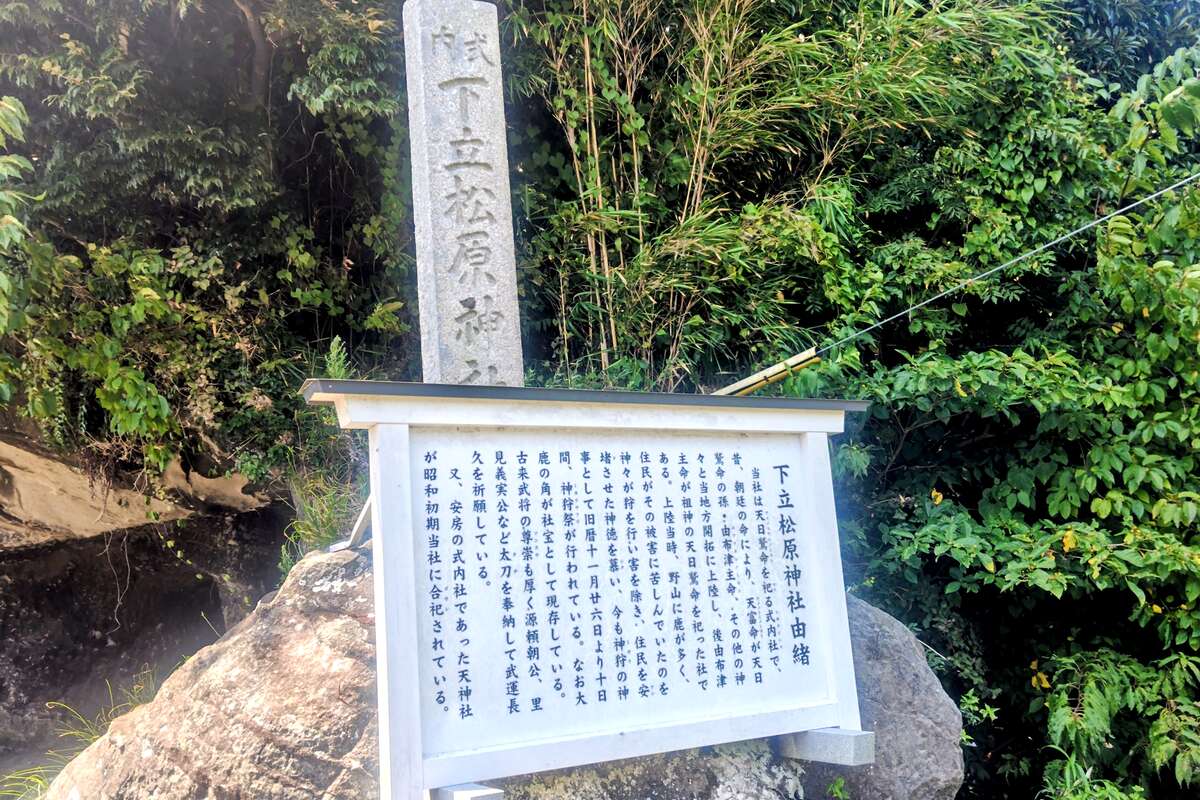 式内
下立松原神社
下立松原神社由緒
当社は天日鷲命を祀る式内社で、
昔、朝廷の命により、天富命が天日
鷲命の孫・由布津主命、その他の神
々と当地方開拓に上陸し、後由布津
主命が祖神の天日鷲命を祀った社で
ある。上陸当時、野山に鹿が多く、
住民がその被害に苦しんでいたのを
神々が狩を行い害を除き、住民を安
堵させた神徳を慕い、今も神狩の神
事として旧暦十一月廿六日より十日
間、神狩祭が行われている。なお大
鹿の角が社宝として現存している。
古来武将の尊崇も厚く源頼朝公、里
見義実公など太刀を奉納して武運長
久を祈願している。
又、安房の式内社であった天神社
が昭和初期当社に合祀されている。